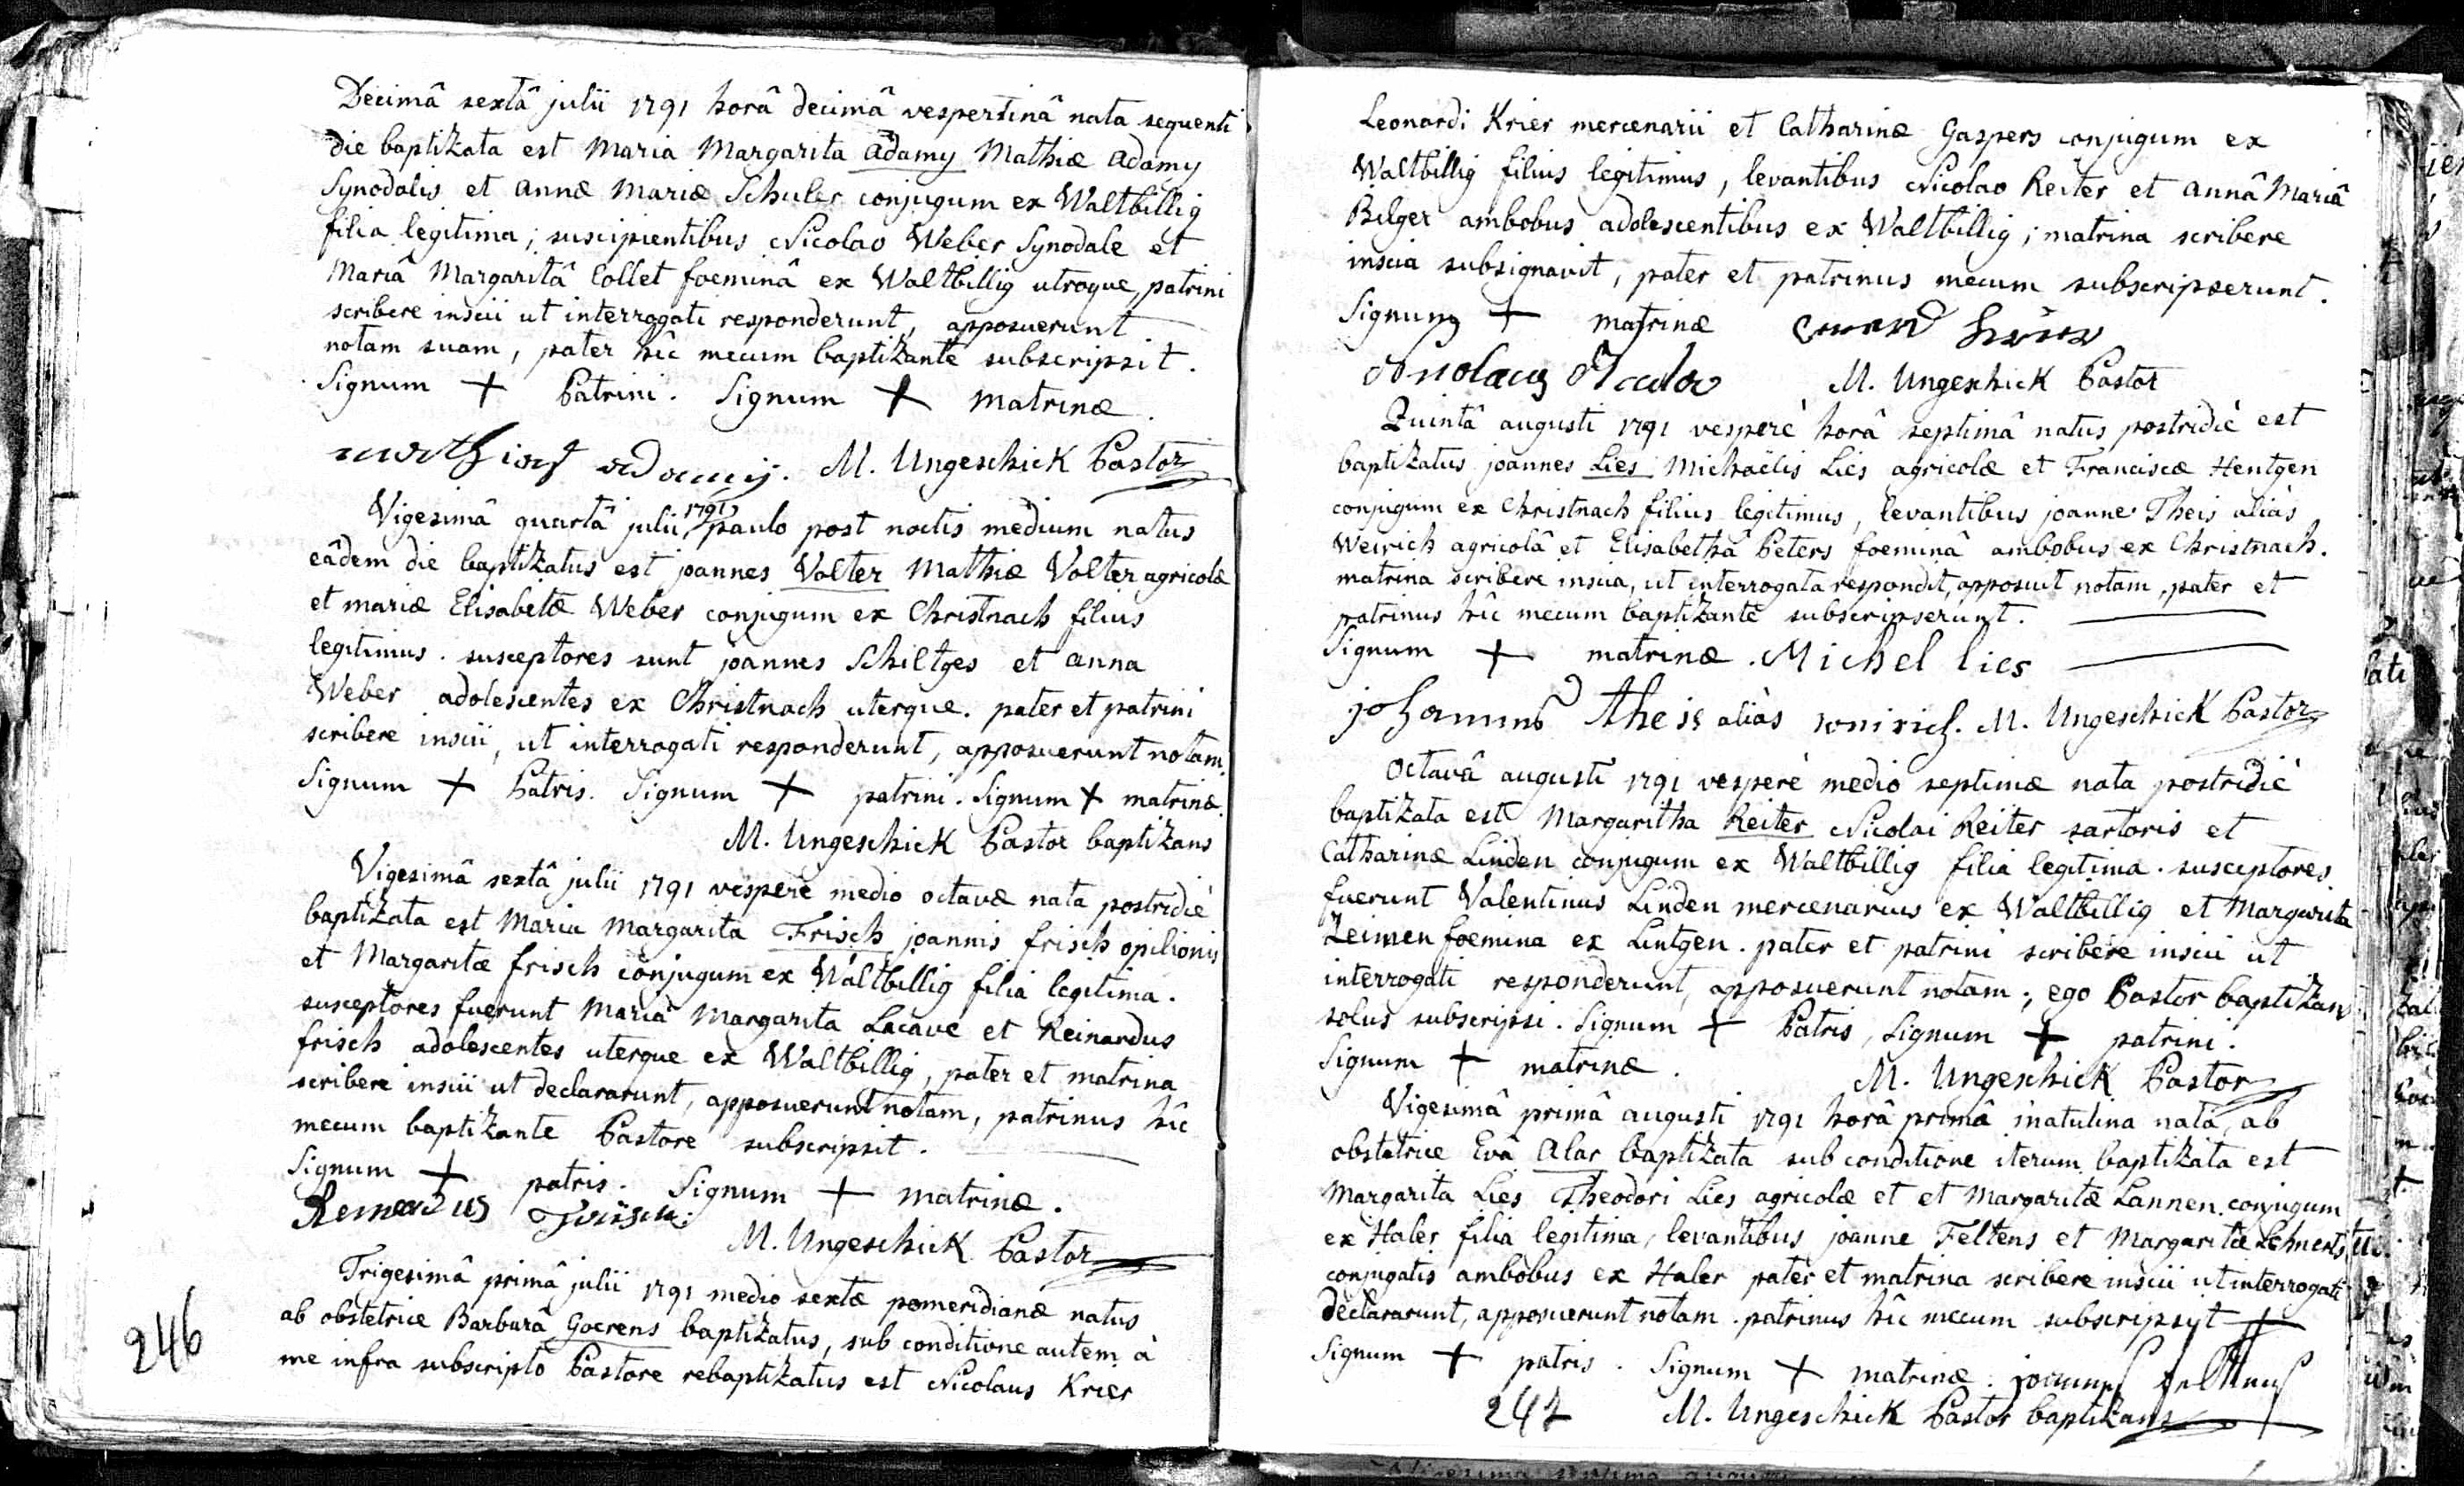 Decimâ sextâ julii 1791 horâ decimâ vespertinâ nata sequenti
die baptizata est Maria Margarita Adamy Mathiæ Adamy
Synodalis et Annæ Mariæ Schuler conjugum ex Waltbillig
filia legitima; suscipientibus Nicolao Weber Synodale et
Mariâ Margaritâ Collet foeminâ ex Waltbillig utroque, patrini
scribere inscii ut interrogati responderunt, apposuerunt
notam suam, pater hîc mecum baptizante subscripsit.
Signum + Patrini. Signum + matrinæ.
mathias adamij. M. Ungeschick Pastor
Vigesimâ quartâ julii 1791 paulo post noctis medium natus
eâdem die baptizatus est joannes Volter Mathiæ Volter agricolæ
et mariæ Elisabetæ Weber conjugum ex Christnach filius
legitimus. susceptores sunt joannes Schiltges et anna
Weber adolescentes ex Christnach uterque. pater et patrini
scribere inscii, ut interrogati responderunt, apposuerunt notam.
Signum + Patris. Signum + patrini. Signum + matrinæ.
M. Ungeschick Pastor baptizans
Vigesimâ sextâ julii 1791 vesperè medio octavæ nata postridiè
baptizata est Maria Margarita Frisch joannis frisch opilionis
et Margaritæ frisch conjugum ex Waltbillig filia legitima.
susceptores fuerunt Maria Margarita Lacave et Reinardus
frisch adolescentes uterque ex Waltbillig, pater et matrina
scribere inscii ut declararunt, apposuerunt notam, patrinus hîc
mecum baptizante Pastore subscripsit.
Signum + patris. Signum + matrinæ.
Reinardus Frisch
M. Ungeschick Pastor
Trigesimâ primâ julii 1791 medio sextæ pomeridianæ natus
ab obstetrice Barbarâ Goerens baptizatus, sub conditione autem à
me infra subscripto Pastore rebaptizatus est Nicolaus Krier
246
Leonardi Krier mercenarii et Catharinæ Gaspers conjugum ex
Waltbillig filius legitimus, levantibus Nicolao Reiter et annâ Mariâ
Bilger ambobus adolescentibus ex Waltbillig; matrina scribere
inscia subsignavit, pater et patrinus mecum subscripserunt.
Signum + matrinæ
M. Ungeschick Pastor
Quintâ augusti 1791 vesperè horâ septimâ natus postridiè est
baptizatus joannes Lies Michaëlis Lies agricolæ et Franciscæ Hentgen
conjugum ex Christnach filius legitimus, levantibus joanne Theis aliàs
Weirich agricolâ et Elisabethâ Peters foeminâ ambobus ex Christnach.
matrina scribere inscia, ut interrogata respondit, apposuit notam, pater et
patrinus hîc mecum baptizante subscripserunt.
Signum + matrinæ. Michel lies
johannes Theis aliàs weirich. M. Ungeschick Pastor
Octavâ augusti 1791 vesperè medio septimæ nata postridiè
baptizata est Margaritha Reiter Nicolai Reiter sartoris et
Catharinæ Linden conjugum ex Waltbillig filia legitima. susceptores
fuerunt Valentinus Linden mercenarius ex Waltbillig et Margarita
Zeimen foemina ex Lintgen. pater et patrini scribere inscii ut
interrogati responderunt, apposuerunt notam; ego Pastor baptizans
solus subscripsi. Signum + Patris, Signum + patrini.
Signum + matrinæ.
M. Ungeschick Pastor
Vigesimâ primâ augusti 1791 horâ primâ matutina nata, ab
obstetrice Evâ Alar baptizata sub conditione iterum baptizata est
Margarita Lies Theodori Lies agricolæ et et Margaritæ Lannen conjugum
ex Haler filia legitima, levantibus joanne Feltens et Margaritæ Lehnerts
conjugatis ambobus ex Haler pater et matrina scribere inscii ut interrogati
declararunt, apposuerunt notam. patrinus hîc mecum subscripsyt
Signum + patris. Signum + matrinæ.
247 M. Ungeschick Pastor baptizans